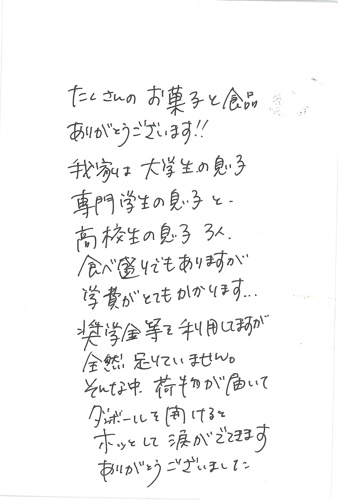 たくさんの お菓子と食品
ありがとうございます!!
我家は 大学生の息子
専門学生の息子 と、
高校生の息子 3人、
食べ盛りでもありますが
学費がとてもかかります...
奨学金等を利用してますが
全然 足りていません。
そんな中、荷物が届いて
ダンボールを開けると
ホッとして 涙がでてきます
ありがとうございました